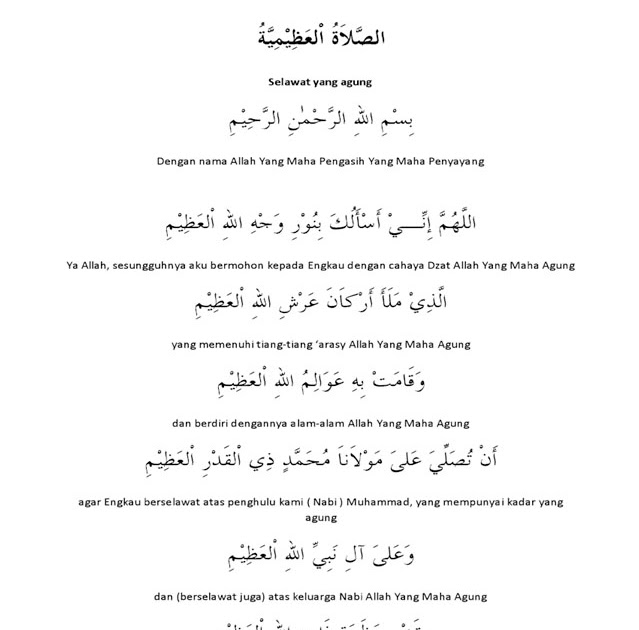 الصَّلاَةُ اْلعَظِيْمِيَّةُ
Selawat yang agung
بِسْمِ اللهِ الرَّحْمٰنِ الرَّحِيْمِ
Dengan nama Allah Yang Maha Pengasih Yang Maha Penyayang
اللَّهُمَّ إِنِّـــيْ أَسْأَلُكَ بِنُوْرِ وَجْهِ اللهِ اْلعَظِيْمِ
Ya Allah, sesungguhnya aku bermohon kepada Engkau dengan cahaya Dzat Allah Yang Maha Agung
الَّذِيْ مَلَأَ أَرْكاَنَ عَرْشِ اللهِ اْلعَظِيْمِ
yang memenuhi tiang-tiang ‘arasy Allah Yang Maha Agung
وَقَامَتْ بِهِ عَوَالِمُ اللهِ اْلعَظِيْمِ
dan berdiri dengannya alam-alam Allah Yang Maha Agung
أَنْ تُصَلِّيَ عَلىَ مَوْلاَناَ مُحَمَّدٍ ذِي اْلقَدْرِ اْلعَظِيْمِ
agar Engkau berselawat atas penghulu kami ( Nabi ) Muhammad, yang mempunyai kadar yang
agung
وَعَلىَ آلِ نَبِيِّ اللهِ اْلعَظِيْمِ
dan (berselawat juga) atas keluarga Nabi Allah Yang Maha Agung